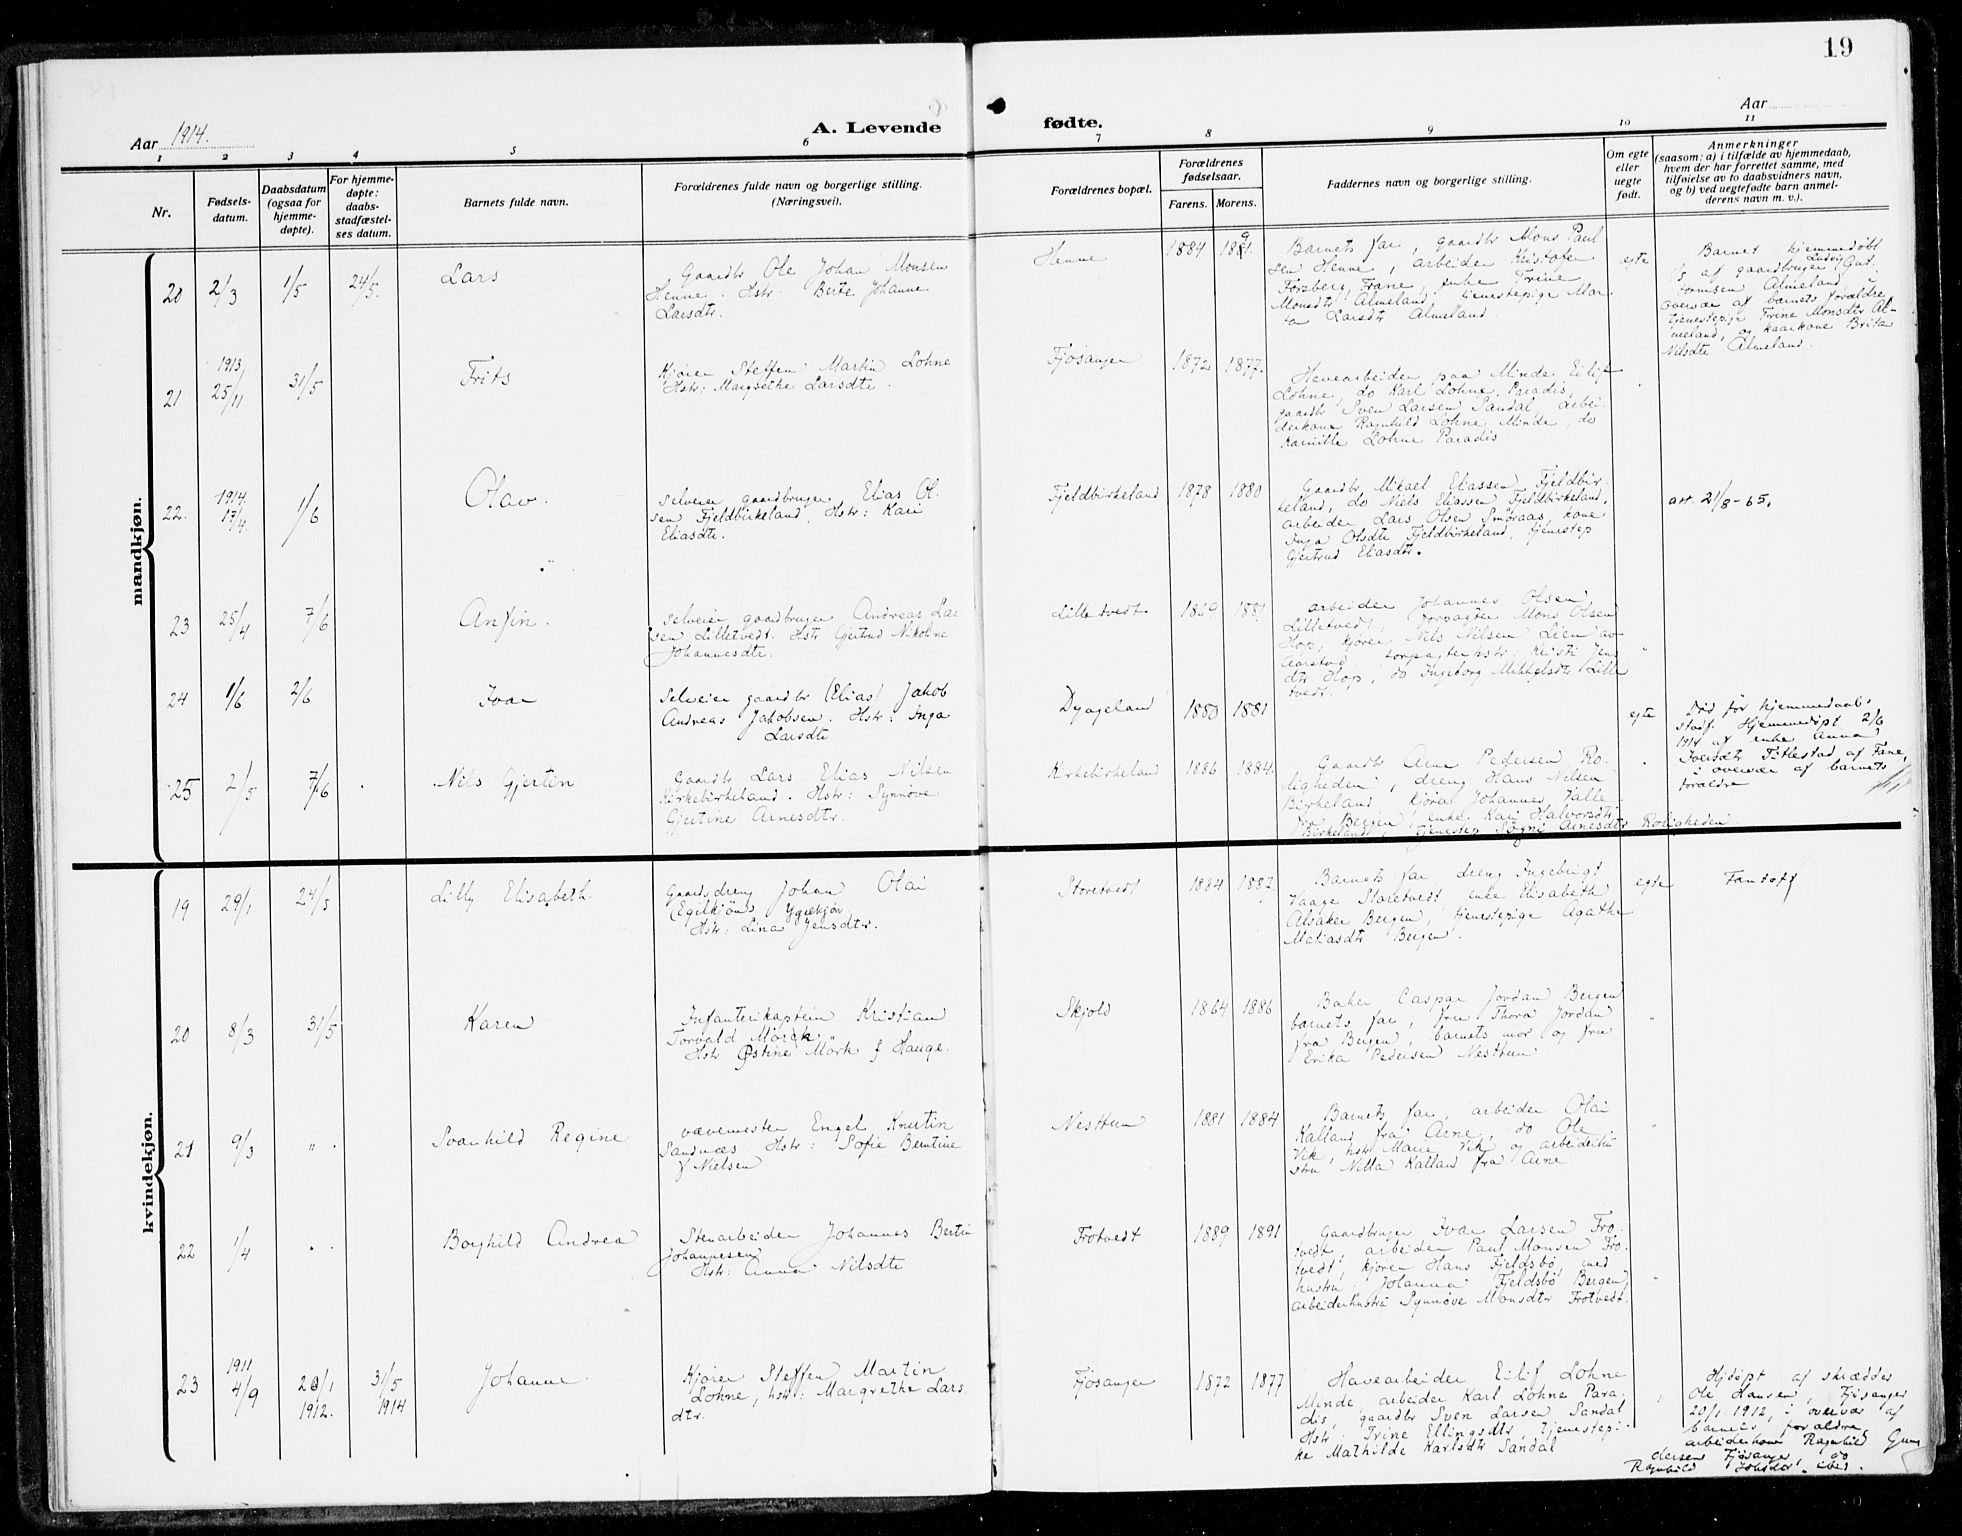 19
Aar 1914.
A. Levende fødte.
Aar
1 2 3 4 5 6 7 8 9 10 11
Nr.
Fødsels-
datum.
Daabsdatum
(ogsaa for
hjemme-
døpte).
For hjemme-
døpte:
daabs-
stadfæstel-
ses datum.
Barnets fulde navn.
Forældrenes fulde navn og borgerlige stilling.
(Næringsvei).
Forældrenes bopæl.
Forældrenes
fødselsaar.
Farens. Morens.
Faddernes navn og borgerlige stilling.
Om egte
eller
uegte
født.
Anmerkninger
(saasom: a) i tilfælde av hjemmedaab,
hvem der har forrettet samme, med
tilføielse av to daabsvidners navn,
og b) ved uegtefødte barn anmel-
derens navn m. v.).
mandkjøn.
20 2/3 1/5 24/5. Lars
Gaardbr Ole Johan Monsen
Henne. Hstr: Berte Johanne
Larsdtr.
Henne 1884
Barnets far, gaardbr Mons Paul
sen Henne, arbeider Kristofer
Forsberg, Fane, enke Trine
Monsdtr Almeland, tjenestepige Mar
ta Larsdtr Almeland.
egte
Barnet hjemmedøbt
1/5 af gaardbruger Ludvig
Almeland
overvær af barnets forældre,
tjenestepige Trine Monsdtr Al-
meland, og kaarkone Brita
Nilsdtr Almeland.
21 1913 25/11 31/5 Frits
Kjører Steffen Martin Lohne
Hstr: Margrethe Larsdtr.
Fjøsanger 1872 1877.
Havearbeider paa Minde Eilif
Lohne, do Karl Lohne, Paradis,
gaardbr Sven Larsen Sandal, arbei-
derkone Ragnhild Lohne Minde, do
Lohne Paradis.
22. 1914 17/4 1/6 Olav.
selveier gaardbruger Elias Ol-
sen Fjeldbirkeland, Hstr: Kari
Eliasdtr.
Fjeldbirkeland 1878 1880
Gaardbr Mikael Eliassen Fjeldbir-
keland, do Niels Eliassen Fjeldbirkeland,
arbeider Lars Olsen Smøraas, kone
Inga Olsdtr Fjeldbirkeland, tjenestep
Gjertrud Eliasdtr.
att 21/8-65.
23 25/4 7/6 Anfin.
selveier gaardbruger Andreas Lar
sen Lilletvedt. Hstr Gjertrud Nikoline
Johannesdtr.
Lilletvedt 1881
arbeider Johannes Olsen
Lilletvedt, forpagter Mons Olsen
Hop, kjører Nils Nilsen Lien av
Aarstad, forpagterhstr. Kristi Jens
dtr Hop, do Ingeborg Mikkelsdtr Lille
tvedt.
24 1/6 2/6 Ivar
Selveier gaardbr (Elias) Jakob
Andreas Jakobsen. Hstr: Inga
Larsdtr
Dyngeland 1880 1881
egte
Død før hjemmedaabs
stadf. Hjemmedøpt 2/6
1914 af enke Anna
Iversdtr Tittlestad af Fane,
i overvær af barnets
forældre
25 2/5 7/6 Nils Gjertin
Gaardbr Lars Elias Nilsen
Kirkebirkeland. Hstr: Synnøve
Gjertine Arnesdtr.
Kirkebirkeland 1886 1884.
Gaardbr Arne Pedersen Ro-
ligheden, dreng Hans Nilsen
Birkeland, kjører Johannes Valle
fra Bergen, enke Kari Halvorsdtr
Birkeland, tjenestep Signi Arnesdtr Roligheden.
kvindekjøn.
19 29/1 24/5 Lilly Elisabeth.
Gaardsdreng Johan Olai
(Egilkjøns)
Hstr: Lina Jensdtr.
Storetvedt 1884 1882
Barnets far, dreng Ingebrigt
Vaage Storetvedt, enke Elisabeth
Alsaker Bergen, tjenestepige Agathe
Matiasdtr Bergen.
egte
Fantoft
20 8/3 31/5 Karen
Infanterikaptein Kristian
Torvald Mørck,
Hstr Østine Mørk f Hauge.
Skjold 1864 1886
Baker Caspar Jordan Bergen
barnets far, fru Thora Jordan
fra Bergen, barnets mor og fru
Erika Pedersen Nesttun
21 9/3 " . Svanhild Regine
vævemester Engel Knutin
Sandnæs. Hstr: Sofie Berntine
f Nielsen
Nesttun 1881 1884
Barnets far, arbeider Olai
Kalland fra Arne, do Ole
Vik, hstr Marie Vik og arbeiderhu
stru Nilla Kalland fra Arne
22 1/4 Borghild Andrea
Stenarbeider Johannes Bertin
Johannesen
Hstr: Anna Nilsdtr
Frotvedt 1889 1891
Gaardbruger Ivar Larsen Fro-
tvedt, arbeider Paul Monsen Fro-
tvedt, kjører Hans Fjeldsbø, med
hustru Johanna Fjeldsbø Bergen,
arbeiderhustru Synnøve Monsdtr Frotvedt.
23 1911 4/9 20/1 1912. 31/5 1914 Johanne
Kjører Steffen Martin
Lohne, hstr: Margrethe Lars
dtr.
Fjøsanger 1872 1877
Havearbeider Eilif Lohne
Minde, arbeider Karl Lohne Para-
dis, gaardbr Sven Larsen Sandal
Hstr Trine Ellingsdtr, tjenestepi-
ke Mathilde Karlsdtr Sandal
Hjdøpt af skrædder
Ole Hansen, Fjøsanger
20/1 1912, i overvær af
barnets forældre,
arbeiderkone Ragnhild Gun
dersen Fjøsanger, do
Ragnhild ibid.